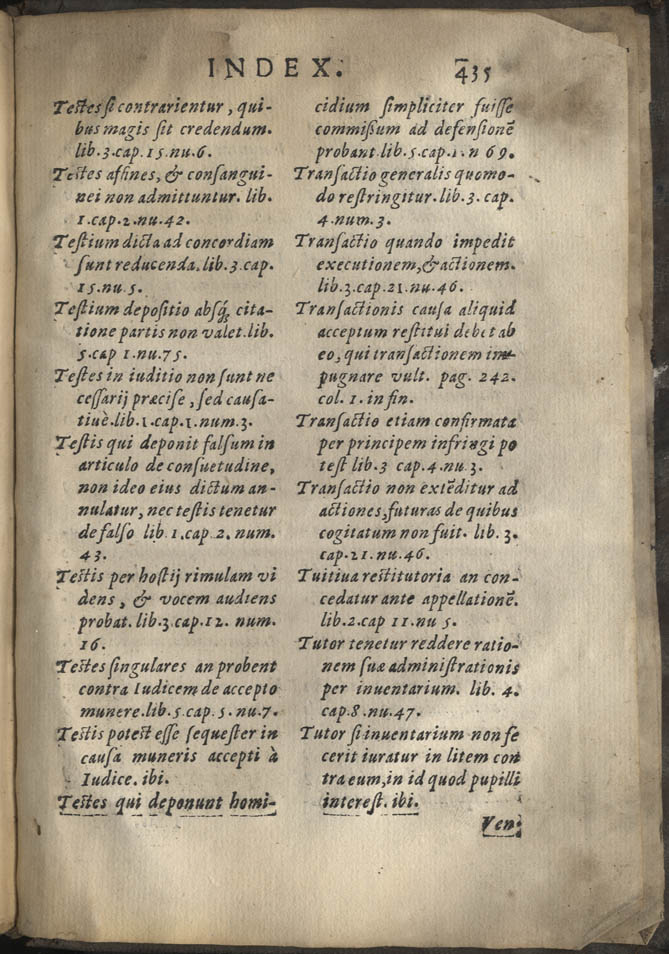 INDEX. 435
Testes si contrarientur, qui-
bus magis sit credendum.
lib.3.cap.15.nu.6.
Testes affines, & consangui-
nei non admittuntur. lib.
1.cap.2.nu.42.
Testium dicta ad concordiam
sunt reducenda. lib.3.cap.
15.nu.5.
Testium depositio absq; cita-
tione partis non valet. lib.
5.cap 1.nu.75.
Testes in iuditio non sunt ne
cessarij præcise, sed causa-
tiuè.lib.1.cap.1.num.3.
Testis qui deponit falsum in
articulo de consuetudine,
non ideo eius dictum an-
nulatur, nec testis tenetur
de falso lib.1.cap.2.num.
43.
Testis per hostij rimulam vi
dens, & vocem audiens
probat. lib.3.cap.12. num.
16.
Testes singulares an probent
contra Iudicem de accepto
munere.lib.5.cap.5.nu.7.
Testis potest esse sequester in
causa muneris accepti à
Iudice. ibi.
Testes qui deponunt homi-
cidium simpliciter fuisse
commißum ad defensionẽ
probant.lib.5.cap.1.n 69.
Transactio generalis quomo-
do restringitur. lib.3.cap.
4.num.3.
Transactio quando impedit
executionem,& actionem.
lib.3.cap.21.nu.46.
Transactionis causa aliquid
acceptum restitui debet ab
eo, qui transactionem im-
pugnare vult. pag. 242.
col. 1. in fin.
Transactio etiam confirmata
per principem infringi po
test lib.3 cap.4.nu.3.
Transactio non extẽditur ad
actiones, futuras de quibus
cogitatum non fuit. lib. 3.
cap.21.nu.46.
Tuitiua restitutoria an con-
cedatur ante appellationẽ.
lib.2.cap 11.nu 5.
Tutor tenetur reddere ratio-
nem suæ administrationis
per inuentarium. lib. 4.
cap.8.nu.47.
Tutor si inuentarium non fe
cerit iuratur in litem con
tra eum, in id quod pupilli
interest. ibi.
Ven-